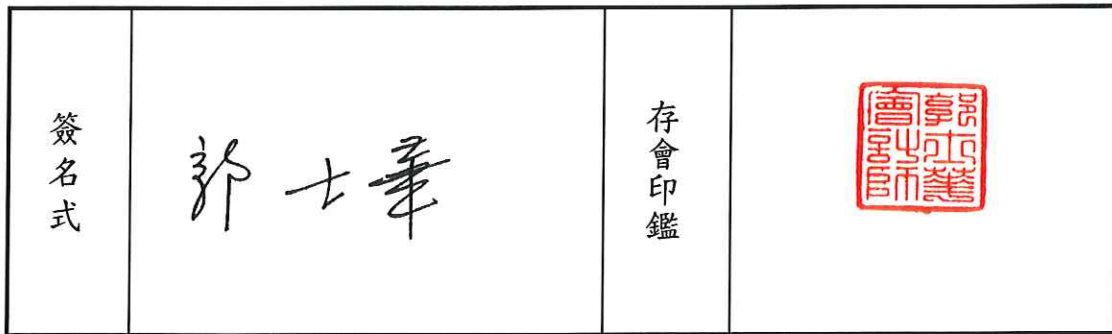 簽名式
郭士華
存會印鑑
郭士華
會計師